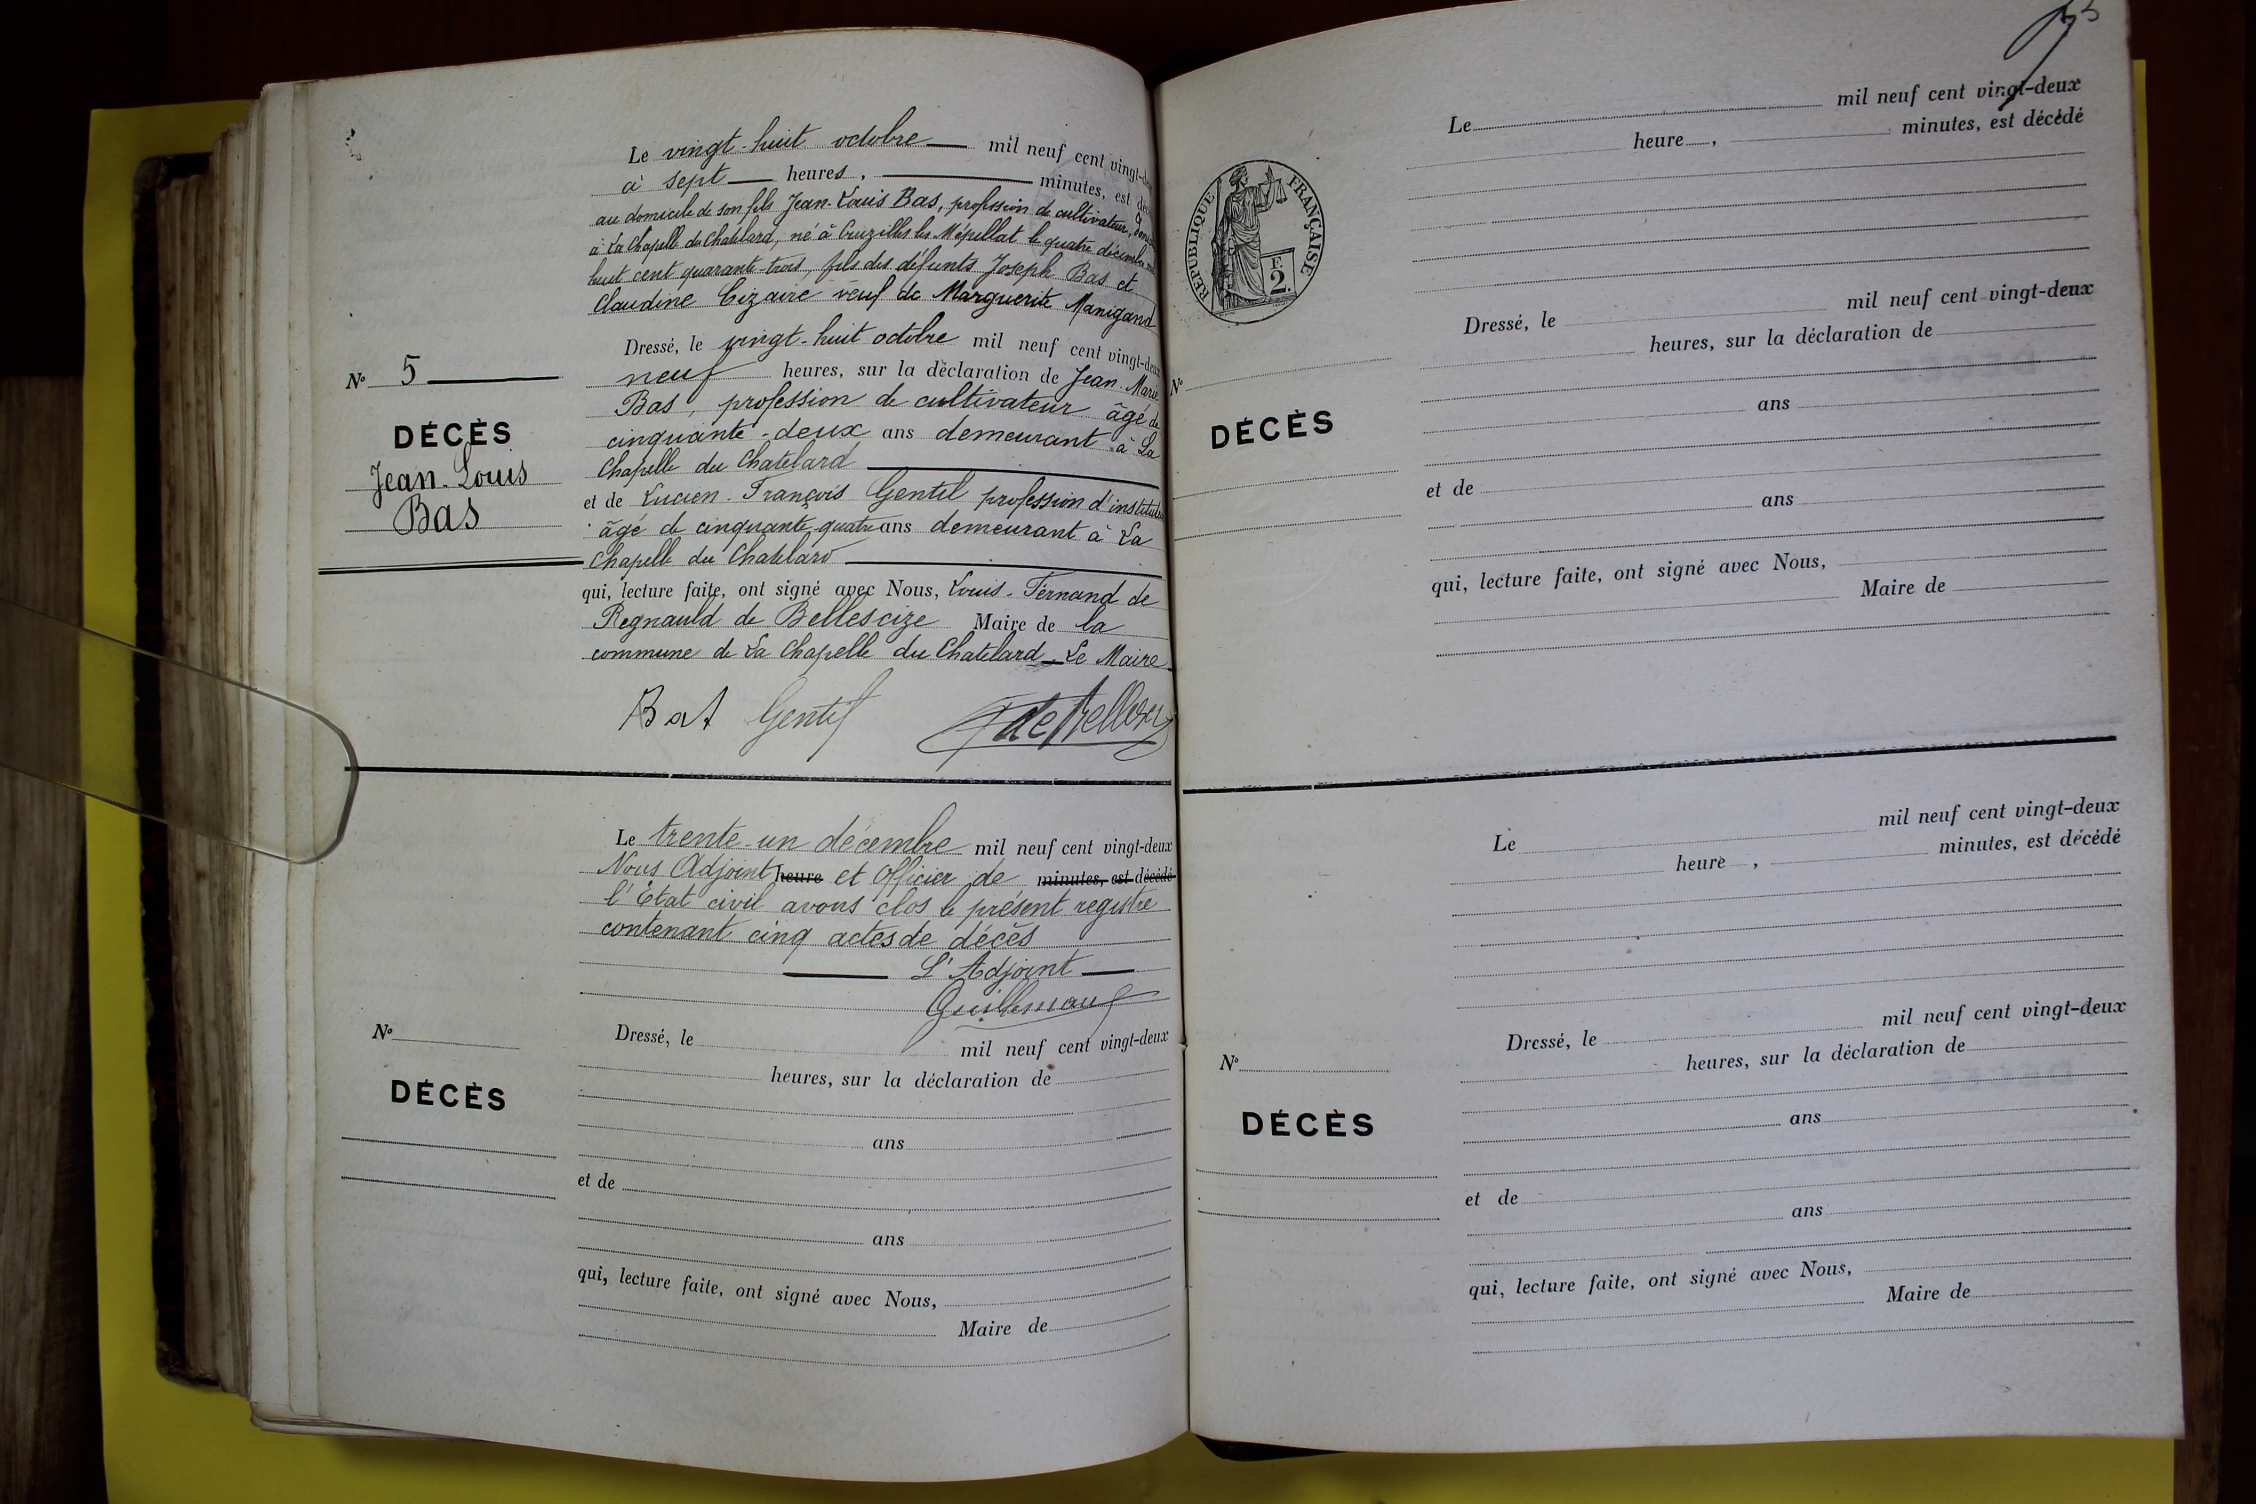 Le vingt-huit octobre mil neuf cent vingt-deux
à sept heures, minutes, est décédé
au domicile de son fils Jean-Louis Bas, profession de cultivateur,
à La Chapelle du Chatelard, né à Cruzilles les Mépillat le quatre décembre mil
huit cent quarante-trois, fils des défunts Joseph Bas et
Claudine Cizaire veuf de Marguerite Manigand
Dressé, le vingt-huit octobre mil neuf cent vingt-deux
neuf heures, sur la déclaration de Jean-Marie
Bas, profession de cultivateur âgé de
cinquante-deux ans demeurant à La
Chapelle du Chatelard
et de Lucien-François Gentil profession d'instituteur
âgé de cinquante-quatre ans demeurant à La
Chapelle du Chatelard
qui, lecture faite, ont signé avec Nous, Louis-Fernand de
Regnauld de Bellescize Maire de la
commune de La Chapelle du Chatelard Le Maire
Bas Gentil
Nº 5
DÉCÈS
Jean-Louis
Bas
Le trente-un décembre mil neuf cent vingt-deux
Nous Adjoint heure et Officier de minutes, est décédé
l'État civil avons clos le présent registre
contenant cinq actes de décès
L'Adjoint
Guillemaud
Nº
DÉCÈS
Dressé, le mil neuf cent vingt-deux
heures, sur la déclaration de
ans
et de
ans
qui, lecture faite, ont signé avec Nous,
Maire de
RÉPUBLIQUE FRANÇAISE
F.
2.
Le mil neuf cent vingt-deux
heure, minutes, est décédé
Dressé, le mil neuf cent vingt-deux
heures, sur la déclaration de
Nº
DÉCÈS
ans
et de
ans
qui, lecture faite, ont signé avec Nous,
Maire de
Le mil neuf cent vingt-deux
heure, minutes, est décédé
Dressé, le mil neuf cent vingt-deux
heures, sur la déclaration de
Nº
DÉCÈS
ans
et de
ans
qui, lecture faite, ont signé avec Nous,
Maire de